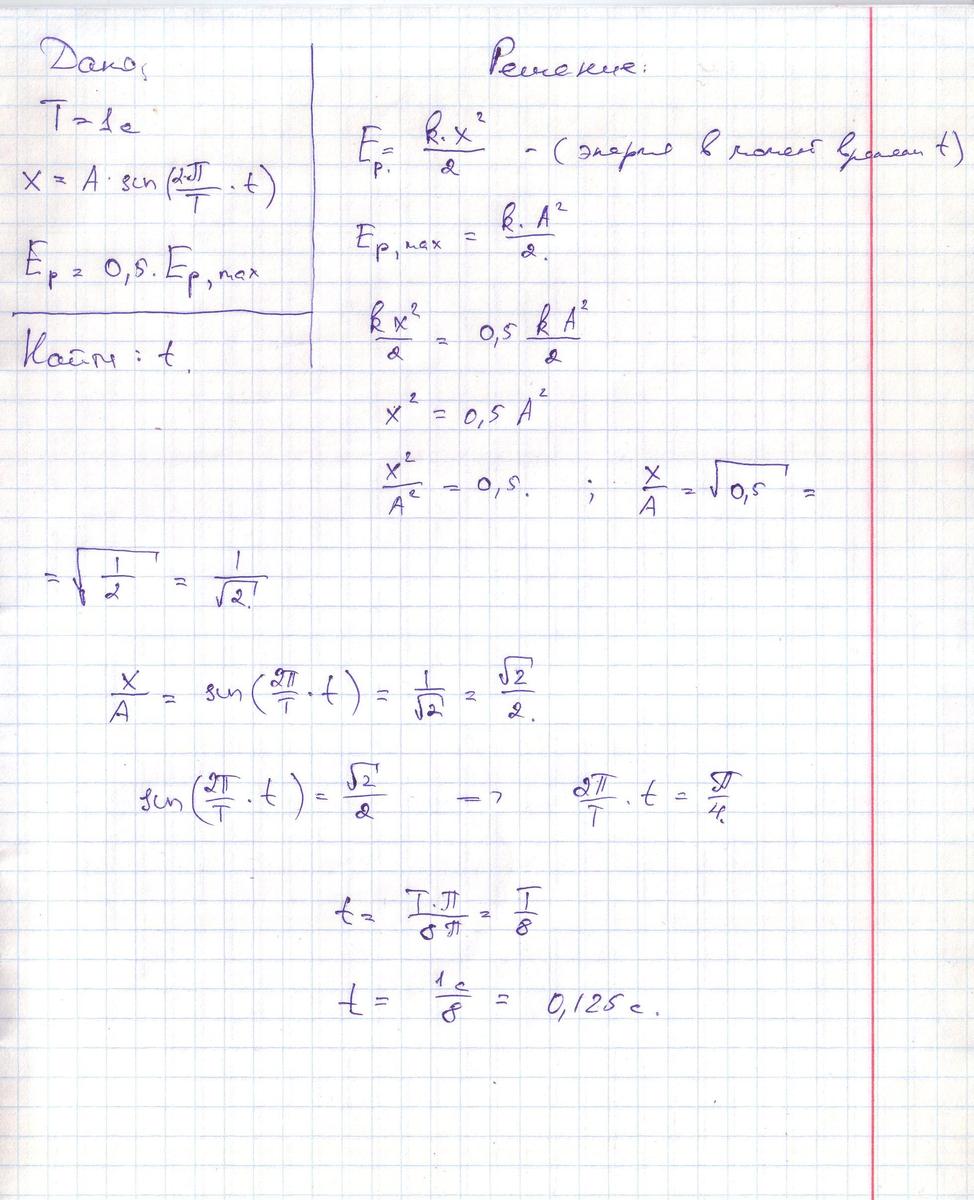 Дано:
T = 1 с
x = A · sin(2·π/T · t)
E_p = 0,5 · E_p,max
Найти : t.
Решение:
E_p. = k·x²/2 - (энергия в момент времени t)
E_p,max = k·A²/2.
kx²/2 = 0,5 kA²/2
x² = 0,5 A²
x²/A² = 0,5. ; x/A = √0,5 =
= √(1/2) = 1/√2.
x/A = sin(2π/T · t) = 1/√2 = √2/2.
sin(2π/T · t) = √2/2 => 2π/T · t = π/4.
t = T·π/8π = T/8
t = 1с/8 = 0,125 с.